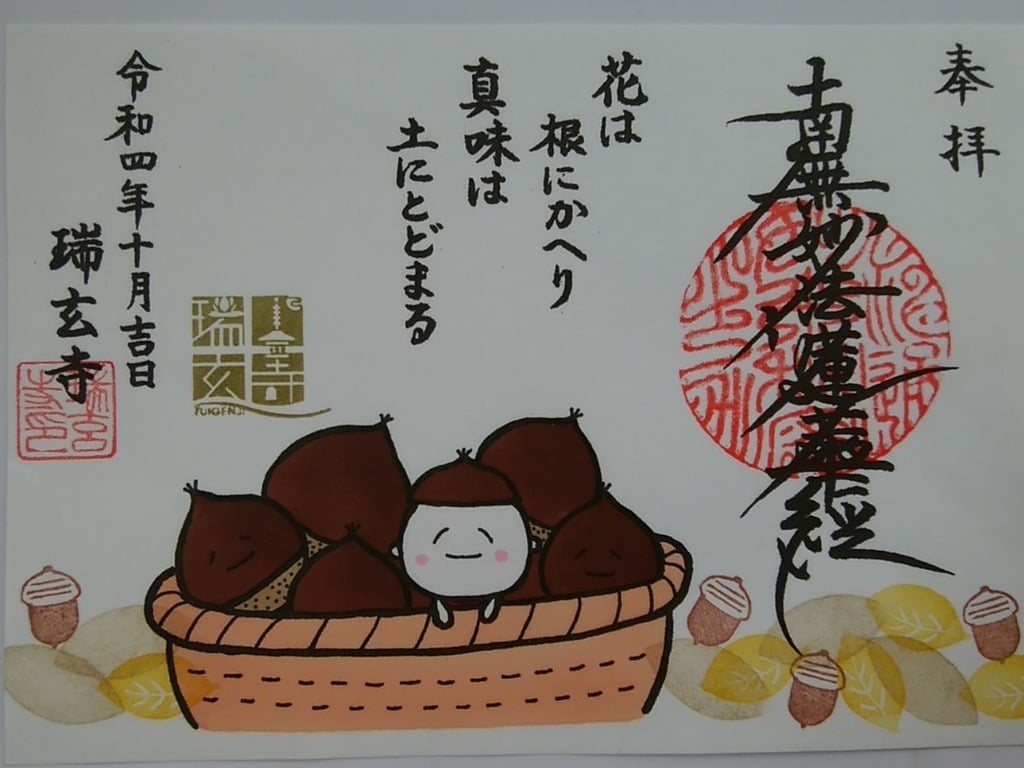 奉拝
南無妙法蓮華経
花は
根にかへり
真味は
土にとどまる
令和四年十月吉日
瑞玄寺
瑞玄寺
ZUIGENJI